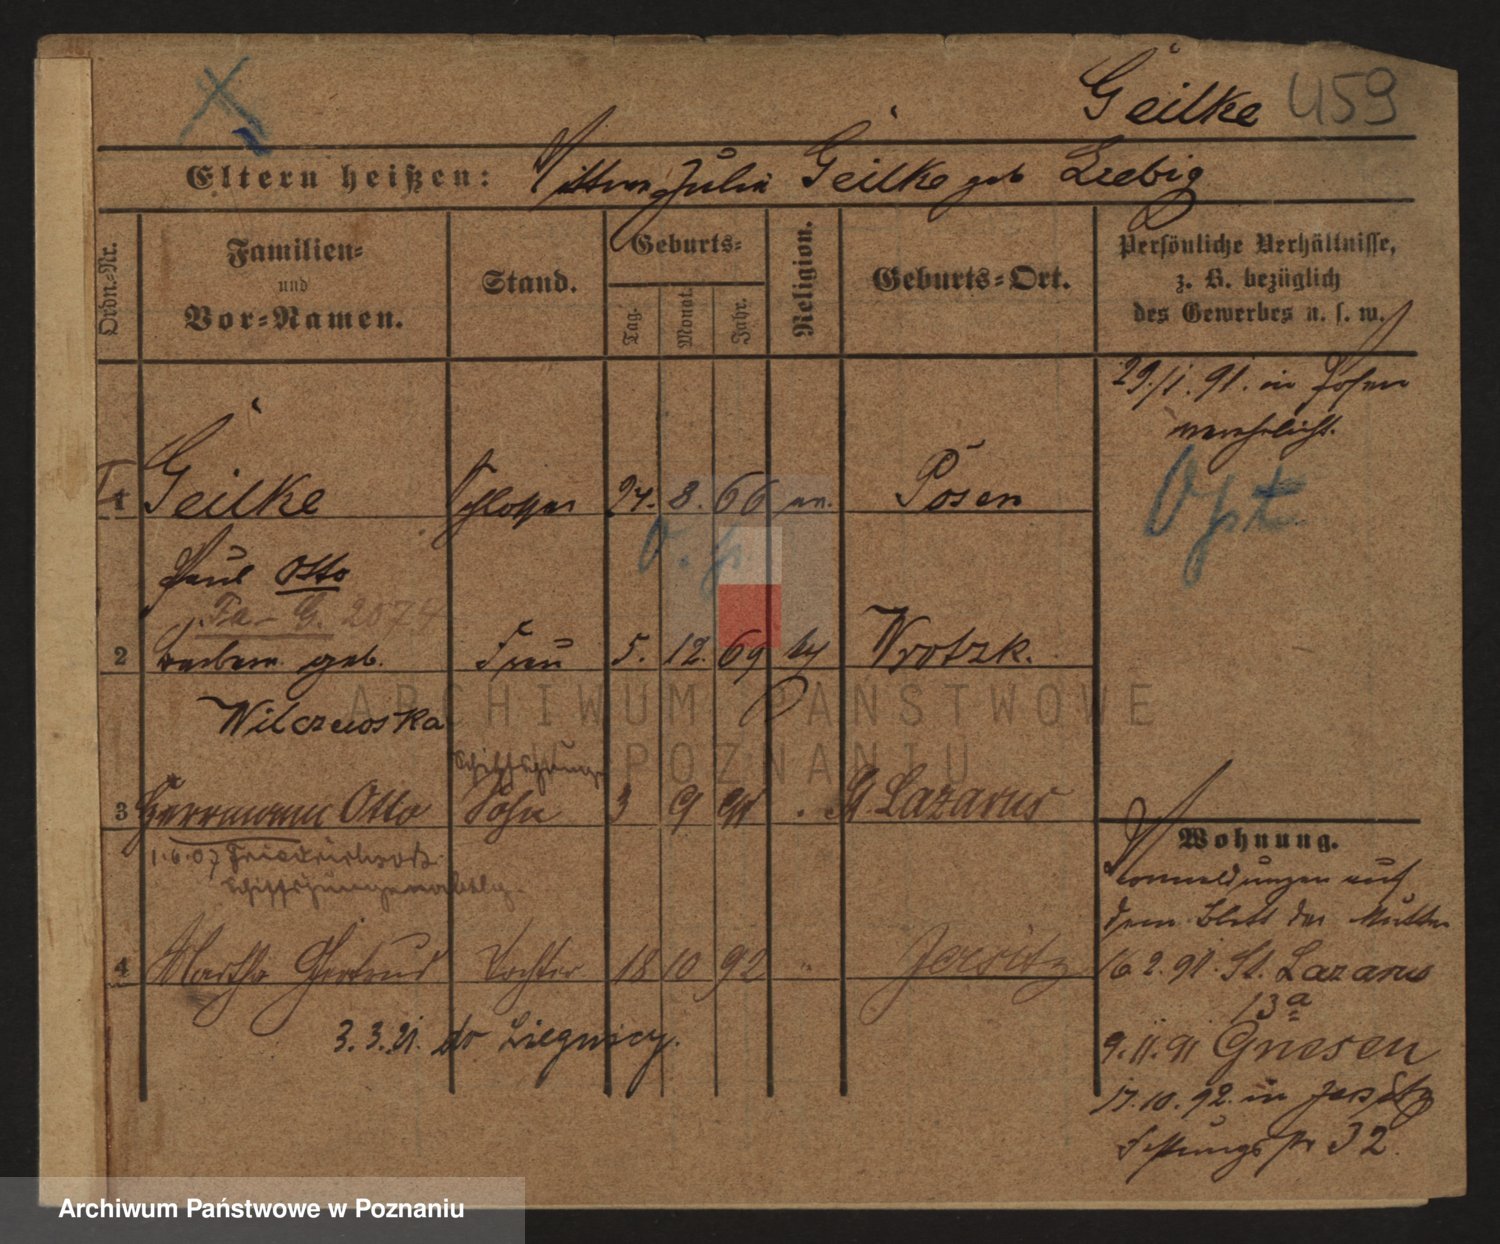 Geilke 459
Eltern heißen: Julie Geilke geb Liebig
Ordn.-Nr.
Familien-
und
Vor-Namen.
Stand.
Geburts-
Tag.
Monat.
Jahr.
Religion.
Geburts-Ort.
Persönliche Verhältnisse,
z. B. bezüglich
des Gewerbes u. s. w.
29./1. 91. in Posen
verehelicht.
1 Geilke Schlosser 24. 8. 66 ev. Posen
Opt
Paul Otto
Fa - G. 2074
2 Barbara geb. Frau 5. 12. 69 Wrotzk.
Wilczewska
ARCHIWUM PAŃSTWOWE
W POZNANIU
Schiffsjunge
3 Herrmann Otto Sohn 3 9 91 St. Lazarus
Wohnung.
1.6.07 Friedrichsort
Schiffsjungenabtlg.
auf
dem Blatt der Mutter
4 Martha Gertrud Tochter 18 10 92 " Jersitz
16. 2. 91. St. Lazarus
13a
3. 3. 21. Liegnicy.
9. 11. 91 Gnesen
17. 10. 92. in Jersitz
32
Archiwum Państwowe w Poznaniu